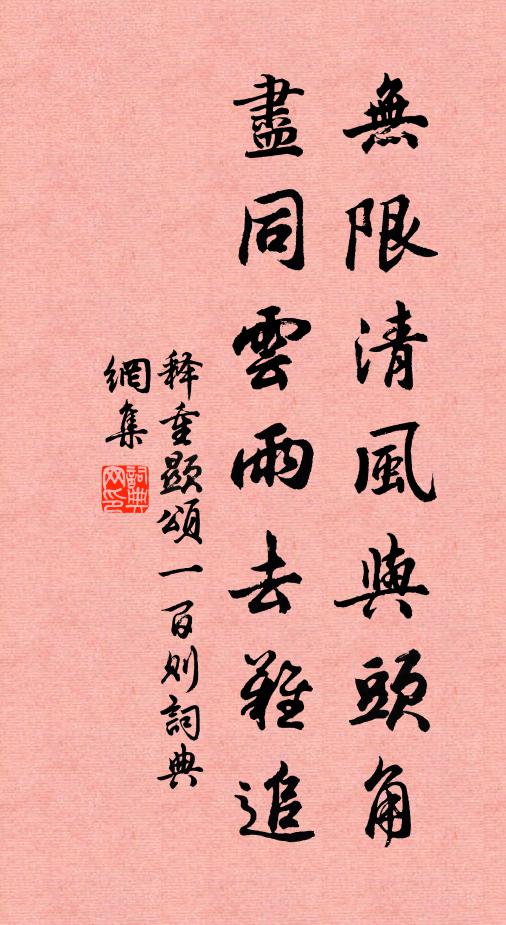 無限清風與頭角
盡同雲雨去難追
释重顯頌一百则詞典
網集
詞典
网印